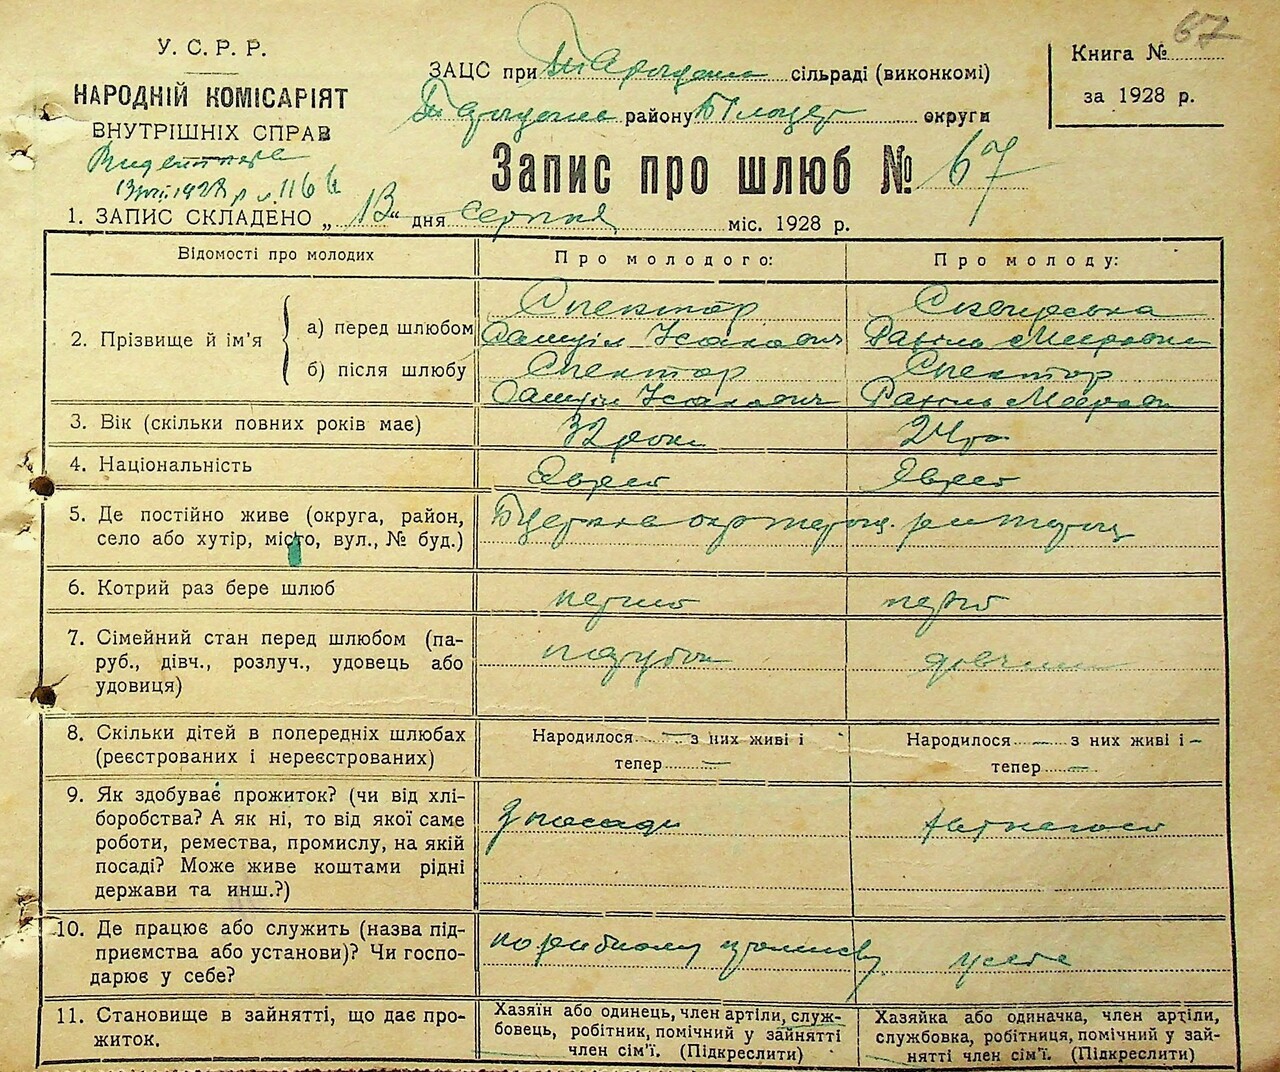 67
У. С. Р. Р.
НАРОДНІЙ КОМІСАРІЯТ
ВНУТРІШНІХ СПРАВ
ЗАЦС при сільраді (виконкомі)
району Білоцер округи
Книга №
за 1928 р.
Запис про шлюб № 67
1. ЗАПИС СКЛАДЕНО „ 13 “ дня серпня міс. 1928 р.
Відомості про молодих
Про молодого:
Про молоду:
2. Прізвище й ім'я
а) перед шлюбом
Спектор
Самуіл Исакович
Рахиль Мееровна
б) після шлюбу
Спектор
Самуіл Исакович
Спектор
Рахиль Мееровн
3. Вік (скільки повних років має)
32 роки
24 ро
4. Національність
Еврей
Еврей
5. Де постійно живе (округа, район,
село або хутір, місто, вул., № буд.)
6. Котрий раз бере шлюб
перший
перший
7. Сімейний стан перед шлюбом (па-
руб., дівч., розлуч., удовець або
удовиця)
парубок
дівчина
8. Скільки дітей в попередніх шлюбах
(реєстрованих і нереєстрованих)
Народилося — з них живі і
тепер —
Народилося — з них живі і —
тепер —
9. Як здобуває прожиток? (чи від хлі-
боробства? А як ні, то від якої саме
роботи, ремества, промислу, на якій
посаді? Може живе коштами рідні
держави та инш.?)
з посади
10. Де працює або служить (назва під-
приємства або установи)? Чи госпо-
дарює у себе?
по
у себе
11. Становище в зайнятті, що дає про-
житок.
Хазяїн або одинець, член артіли, служ-
бовець, робітник, помічний у зайнятті
член сім'ї. (Підкреслити)
Хазяйка або одиначка, член артіли,
службовка, робітниця, помічний у зай-
нятті член сім'ї. (Підкреслити)